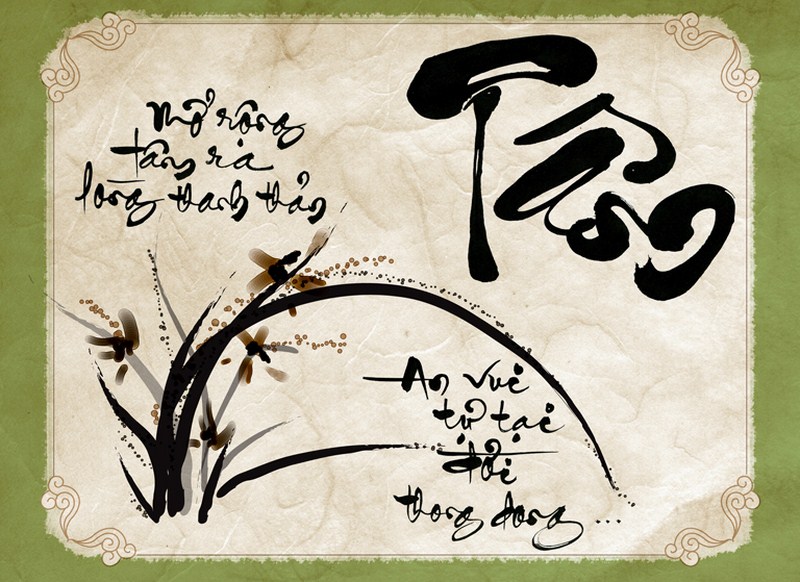 Tâm
Mở rộng
tâm ra
lòng thanh thản
An vui
tự tại
đời
thong dong ...